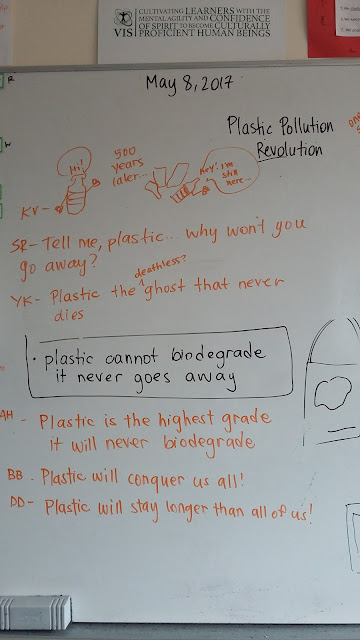 CULTIVATING LEARNERS WITH THE
MENTAL AGILITY AND CONFIDENCE
OF SPIRIT TO BECOME CULTURALLY
VIS PROFICIENT HUMAN BEINGS
May 8, 2017
Plastic Pollution
Revolution
Hi!
500
years
later...
Hey! I'm
still
here...
KV -
SR - Tell me, plastic... why won't you
go away?
deathless?
YK - Plastic the ^ ghost that never
dies
• plastic cannot biodegrade
it never goes away
AH - Plastic is the highest grade
it will never biodegrade
BB - Plastic will conquer us all!
DD - Plastic will stay longer than all of us!